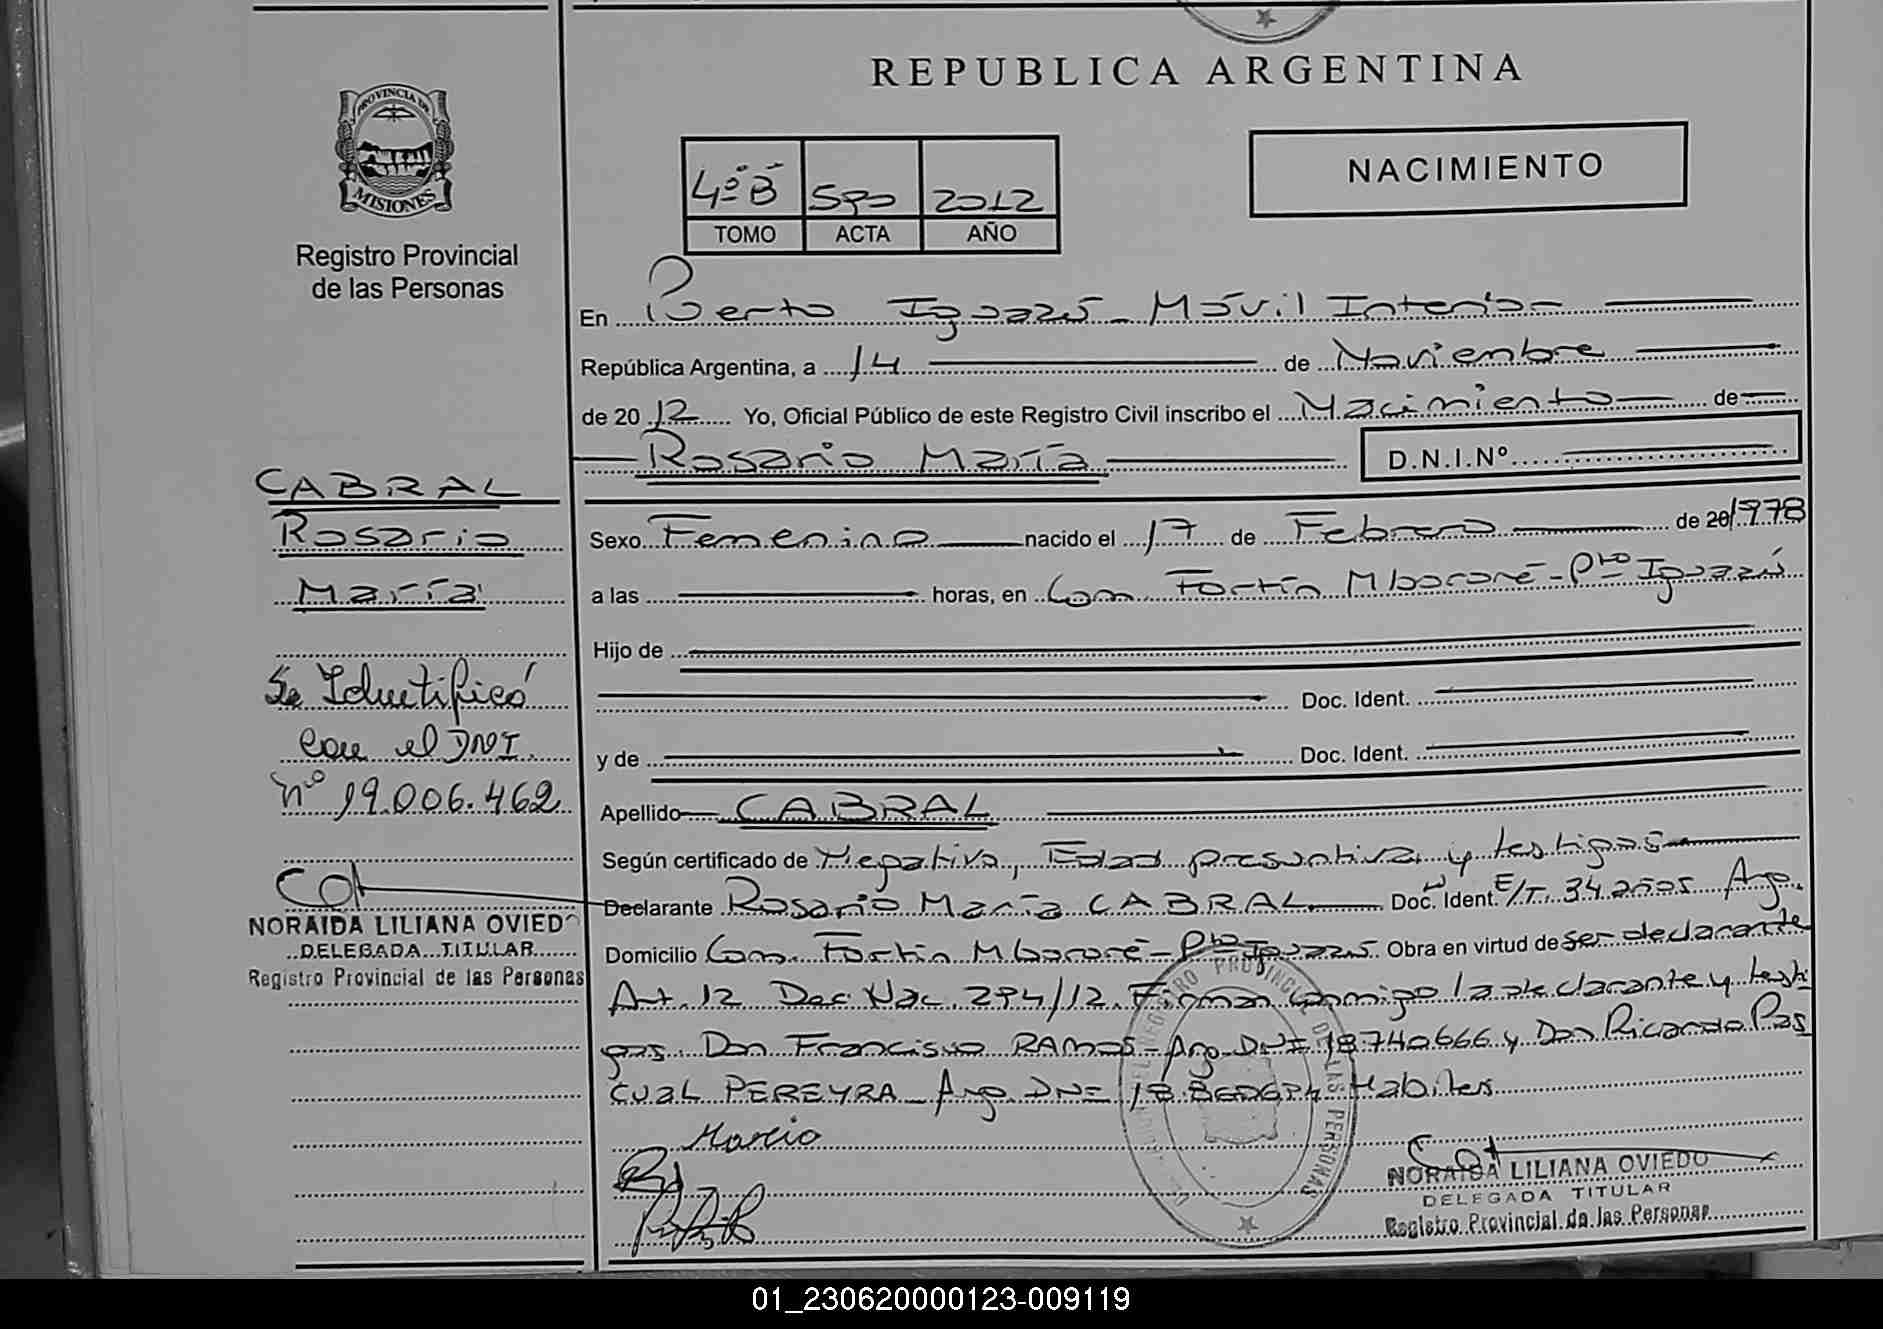 REPUBLICA ARGENTINA
PROVINCIA DE
MISIONES
Registro Provincial
de las Personas
4º "B" 2012
TOMO ACTA AÑO
NACIMIENTO
En Puerto Iguazú - Móvil Interior
República Argentina, a 14 de Noviembre
de 2012 Yo, Oficial Público de este Registro Civil inscribo el Nacimiento de
Rosario María D.N.I.Nº
Sexo Femenino nacido el 17 de Febrero de 20/1978
a las horas, en Com. Fortín Mbororé - Pto Iguazú
Hijo de
Doc. Ident.
y de Doc. Ident.
Apellido CABRAL
Según certificado de Negativo, Edad presuntiva y testigos
Declarante Rosario María CABRAL Doc. Ident. E/T. 34 años Arg.
Domicilio Com. Fortín Mbororé - Pto Iguazú Obra en virtud de ser declarante
Art. 12 Dec Nac. 294/12. Firman conmigo la declarante y testi
gos. Don Francisco RAMOS - Arg. DNI 18740666 y Don Ricardo Pas
cual PEREYRA - Arg. DNI Habiles.
CABRAL
Rosario
María
Se Identificó
con el DNI.
nº 19.006.462
NORAIDA LILIANA OVIEDO
DELEGADA TITULAR
Registro Provincial de las Personas
REGISTRO PROVINCIAL DE LAS PERSONAS
NORAIDA LILIANA OVIEDO
DELEGADA TITULAR
Registro Provincial de las Personas
01_230620000123-009119